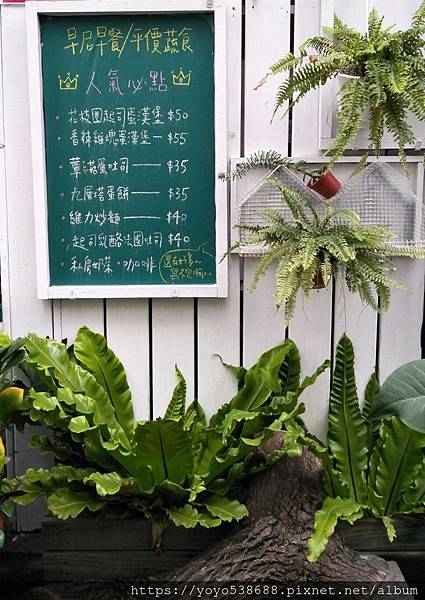 早居早餐/平價蔬食
人氣必點
花枝園起司蛋漢堡－$50
香辣雞塊蛋漢堡－$55
蘑菇蛋吐司——$35
九層塔蛋餅——$35
維力炒麵——$40
起司乳酪法國吐司$40
私房奶茶·咖啡
還有好多~
寫不完啊~
https://yoyo538688.pixnet.net/album